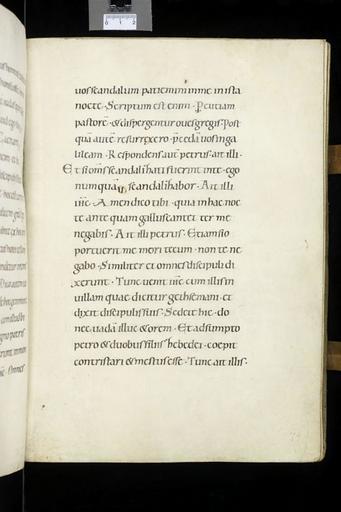 uos scandalum patiemini in me in ista
nocte · Scriptum est enim · Percutiam
pastorē · & dispergentur oues gregis · Post
quā autē resurrexero · p̄cedā uos in ga
lileam · Respondens aut̄ petrus ait illi ·
Et si om̄s scandalizati fuerint in te · ego
numquā scandalizabor · Ait illi
iħc · Amen dico tibi · quia in hac noc
te ante quam gallus cantet ter me
negabis · Ait illi petrus · Etiam si o
portuerit me mori tecum · non te ne
gabo · Similiter et omnes discipuli di
xerunt · Tunc uenit iħc cum illis in
uillam quae dicitur gethsemani · et
dixit discipulis suis · Sedete hic · do
nec uadā illuc & orem · Et adsumpto
petro & duobus filiis zebedei · coepit
contristari & mestus esse · Tunc ait illis ·